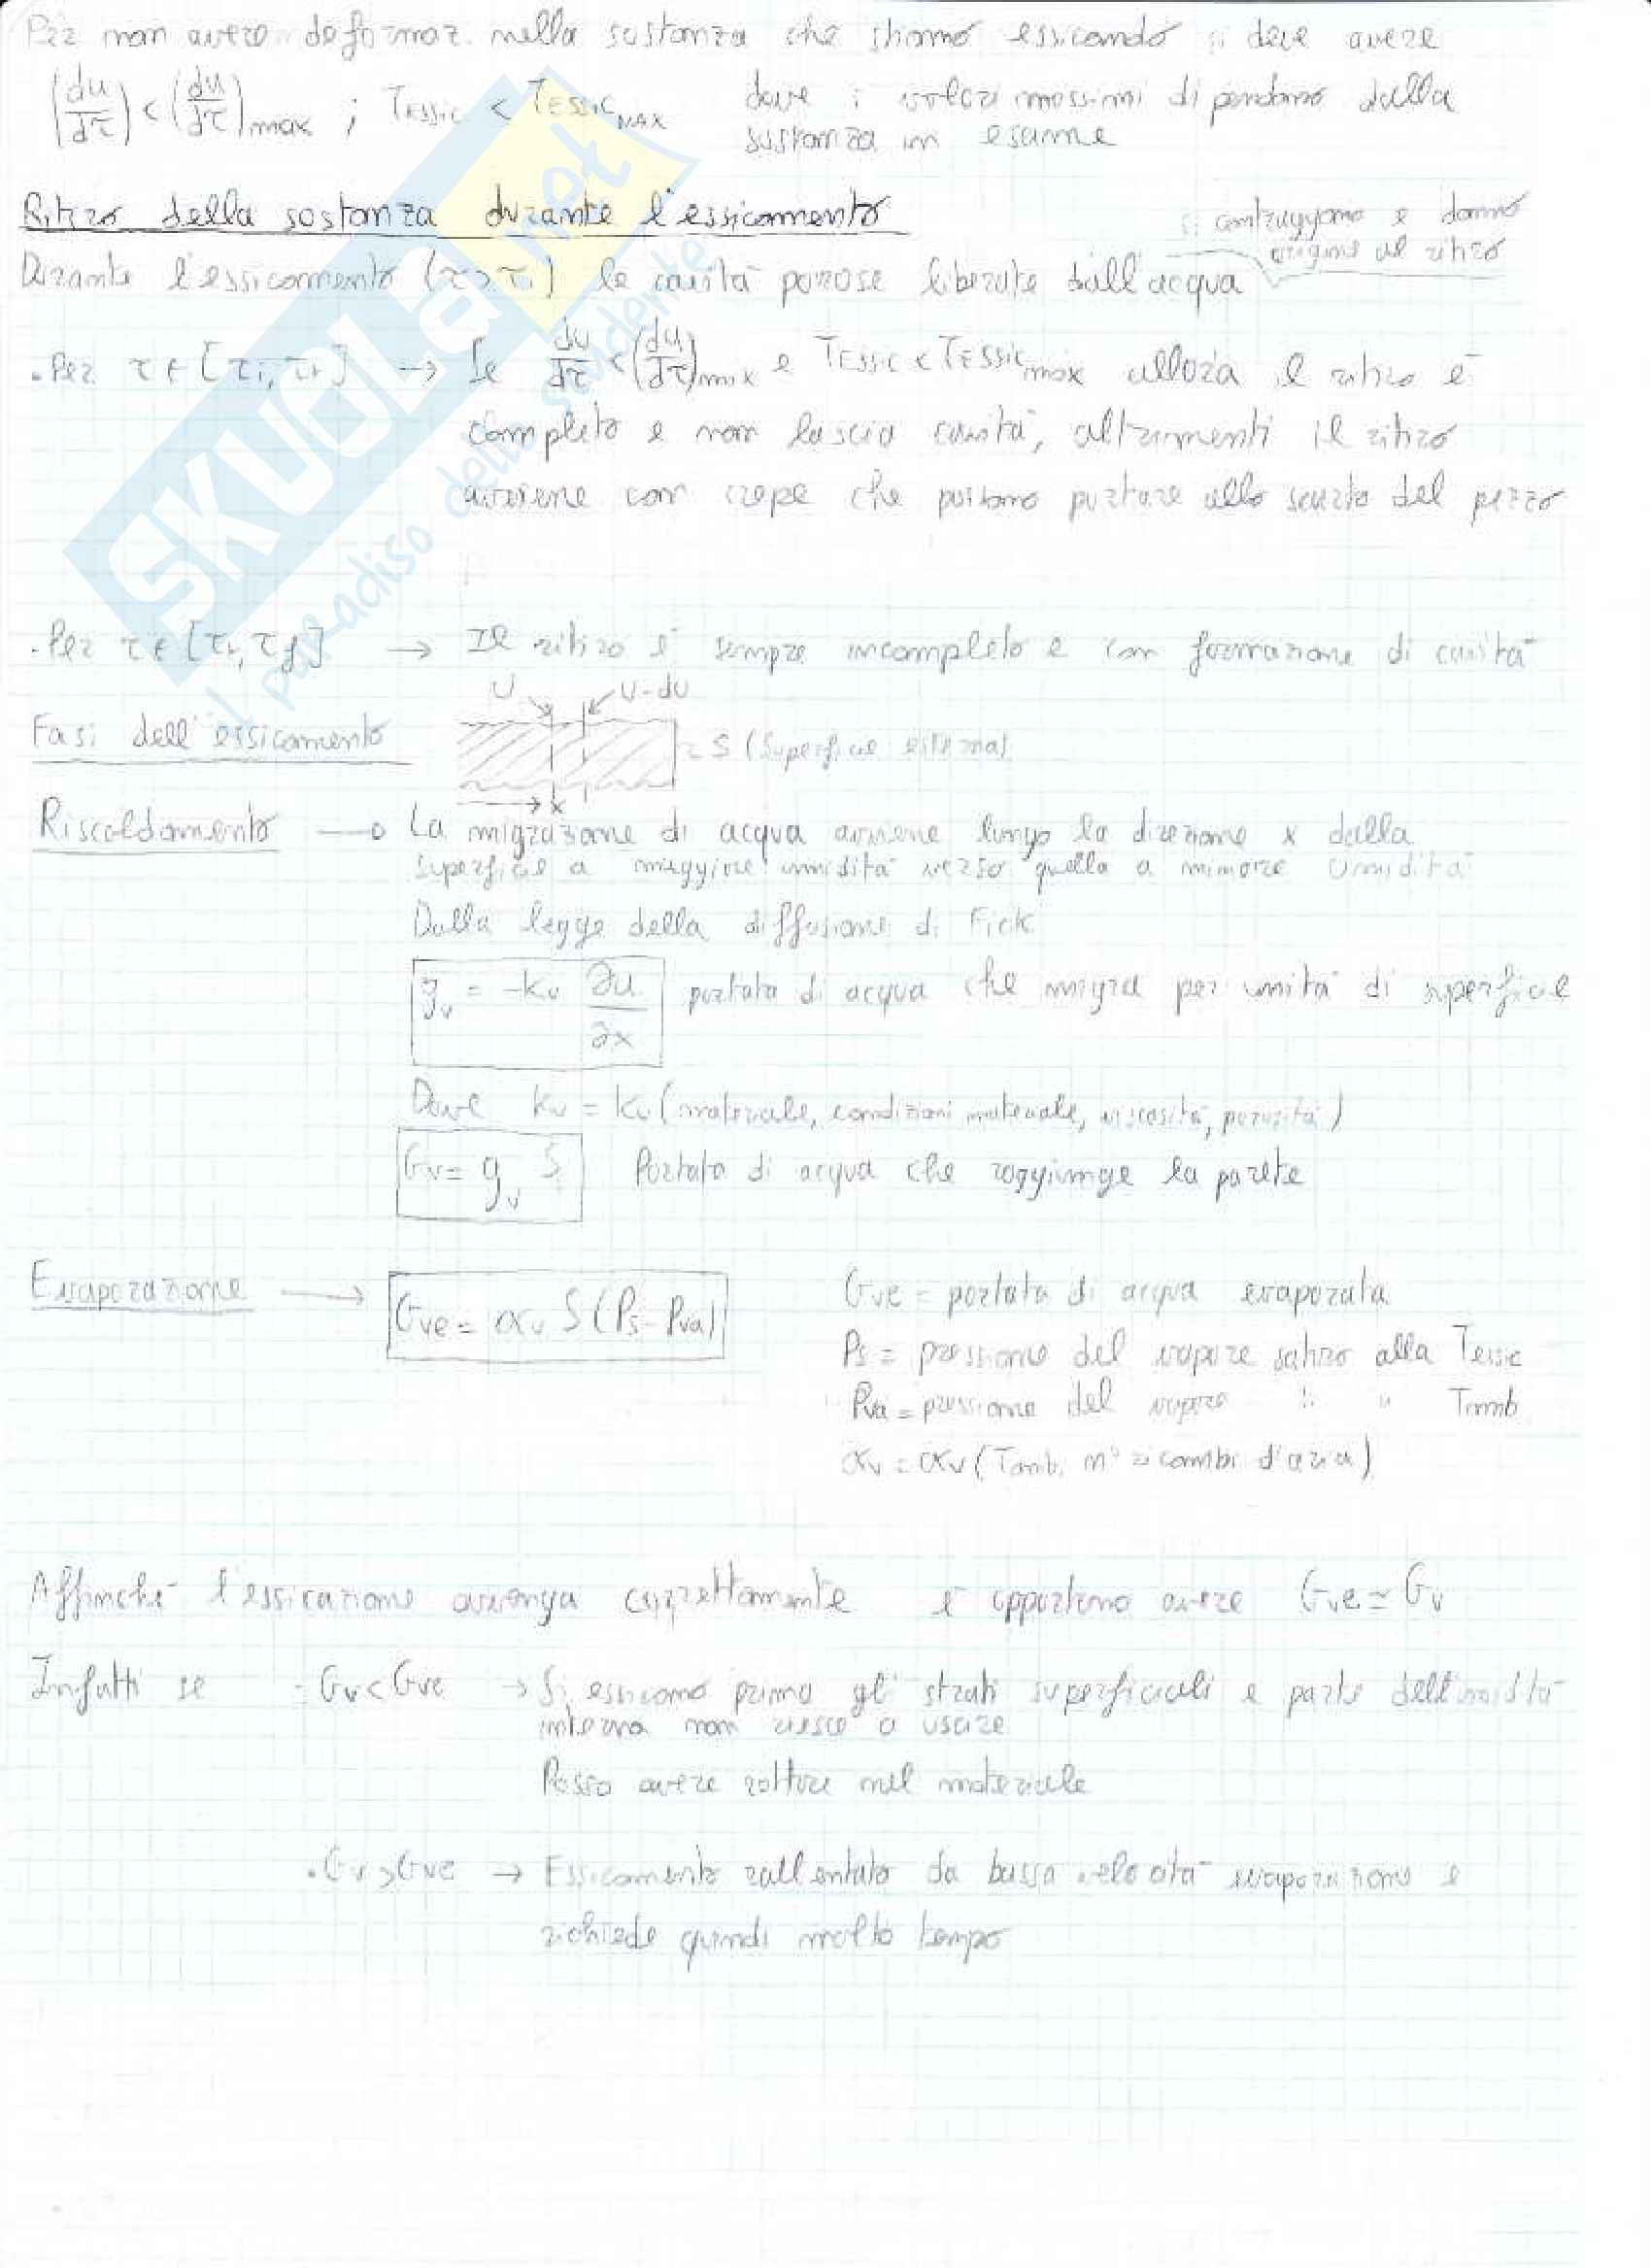 Per non avere deformaz. nella sostanza che stiamo essicando si deve avere
(du/dτ) < (du/dτ)max ; Tessic < TessicMAX dove i valori massimi dipendono dalla
sostanza in esame
Ritiro della sostanza durante l'essicamento
si contraggono e danno
origine al ritiro
Durante l'essicamento (τ>τi) le cavità porose liberate dall'acqua
. Per τ ∈ [τi, τr] → Se du/dτ < (du/dτ)max e Tessic < Tessicmax allora il ritiro è
completo e non lascia cavità, altrimenti il ritiro
avviene con crepe che possono portare allo scarto del pezzo
. Per τ ∈ [τr, τf] → Il ritiro è sempre incompleto e con formazione di cavità
U U-dU
Fasi dell'essicamento
= S (Superficie esterna)
x
Riscaldamento → La migrazione di acqua avviene lungo la direzione x dalla
superficie a maggiore umidità verso quella a minore umidità
Dalla legge della diffusione di Fick
gv = -kv ∂u/∂x portata di acqua che migra per unità di superficie
Dove kv = kv (materiale, condizioni materiale, viscosità, porosità)
Gv = gv S Portata di acqua che raggiunge la parete
Evaporazione → Gve = αv S (Ps - Pva)
Gve = portata di acqua evaporata
Ps = pressione del vapore saturo alla Tessic
Pva = pressione del vapore " " Tamb
αv = αv (Tamb, n° ricambi d'aria)
Affinché l'essicazione avvenga correttamente è opportuno avere Gve ≃ Gv
Infatti se - Gv < Gve → Si essicano prima gli strati superficiali e parte dell'umidità
interna non riesce a uscire
Posso avere rotture nel materiale
. Gv > Gve → Essicamento rallentato da bassa velocità evaporazione e
richiede quindi molto tempo
SKUOLA.net
il paradiso dello studente